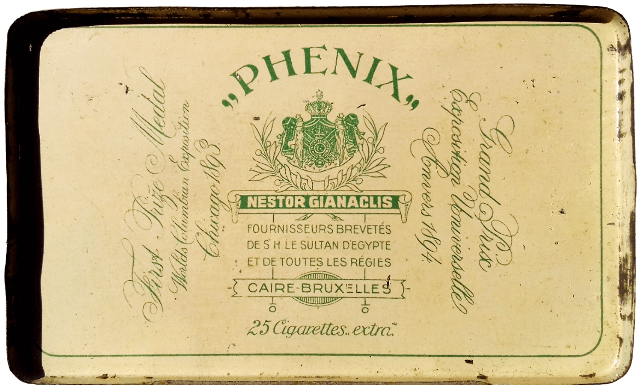 „PHENIX”
First Prize Medal
Worlds Columbian Exposition
Chicago 1893
Grand Prix
Exposition Universelle
Anvers 1894
NESTOR GIANACLIS
FOURNISSEURS BREVETÉS
DE S.H. LE SULTAN D'EGYPTE
ET DE TOUTES LES RÉGIES
CAIRE-BRUXELLES
25 Cigarettes „extra”